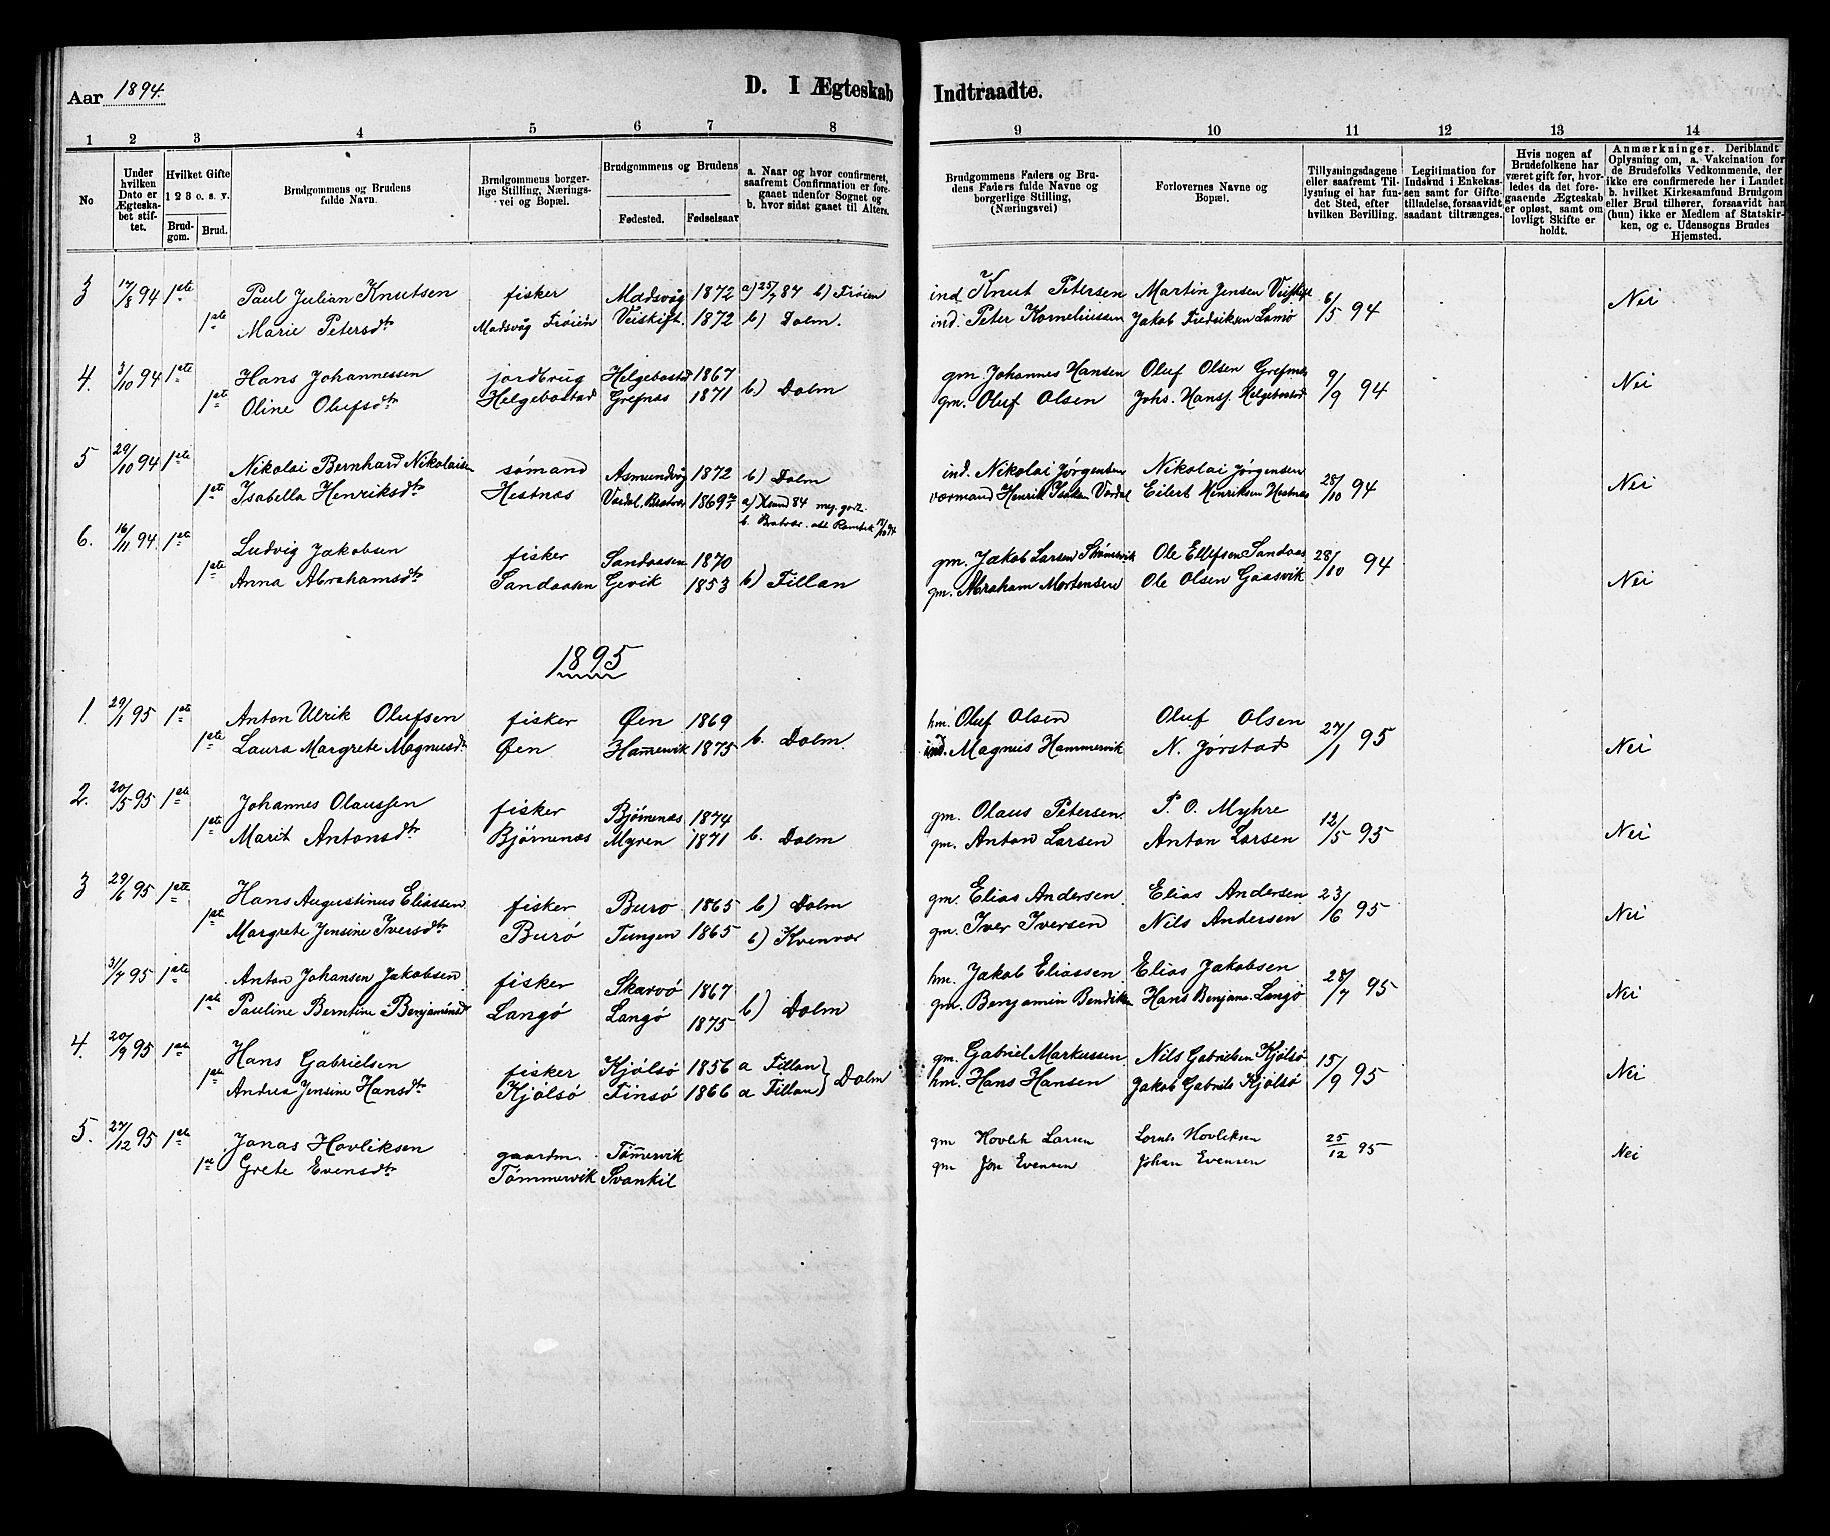 Aar 1894.
D. I Ægteskab Indtraadte.
1 2 3 4 5 6 7 8 9 10 11 12 13 14
No
Under hvilken Dato er Ægteskabet stiftet.
Hvilket Gifte 1 2 3 o. s. v.
Brudgom. Brud.
Brudgommens og Brudens fulde Navn.
Brudgommens borgerlige Stilling, Næringsvei og Bopæl.
Brudgommens og Brudens
Fødested. Fødselsaar
a. Naar og hvor confirmeret, saafremt Confirmation er foregaaet udenfor Sognet og b. hvor sidst gaaet til Alters.
Brudgommens Faders og Brudens Faders fulde Navne og borgerlige Stilling, (Næringsvei)
Forlovernes Navne og Bopæl.
Tillysningsdagene eller saafremt Tillysning ei har fundet Sted, efter hvilken Bevilling.
Legitimation for Indskud i Enkekassen samt for Giftetilladelse, forsaavidt saadant tiltrænges.
Hvis nogen af Brudefolkene har været gift før, hvorledes da det foregaaende Ægteskab er opløst, samt om lovligt Skifte er holdt.
Anmærkninger. Deriblandt Oplysning om, a. Vakcination for de Brudefolks Vedkommende, der ikke ere confirmerede her i Landet b. hvilket Kirkesamfund Brudgom eller Brud tilhører, forsaavidt han (hun) ikke er Medlem af Statskirken, og c. Udensogns Brudes Hjemsted.
3 17/8 94 1ste Paul Julian Knutsen fisker Madsvåg 1872 a) 25/7 87 b) Frøien ind Knut Petersen Martin Jensen Veiskift 6/5 94 Nei
1ste Marie Petersdtr Madsvåg Frøien Veiskift. 1872 b) Dolm. ind. Peter Korneliussen Jakob Fredriksen Lamø
4. 3/10 94 1ste Hans Johannessen jordbrug Helgebostad 1867 b) Dolm gm. Johannes Hansen Oluf Olsen Grefnes 9/9 94 Nei
1ste Oline Olufsdtr Helgebostad Grefnæs 1871 gm. Oluf Olsen Johs. Hansf Helgebostad
5 29/10 94 1ste Nikolai Bernhard Nikolaisen sømand Asmundvåg 1872 b) Dolm ind. Nikolai Jørgensen Nikolai Jørgensen 28/10 94 Nei
1ste Isabella Henriksdtr Hestnæs Vardal, Bratvær 1869 a) Xsund 84 meg. godt. værmand Henrik Isaksen Vardal Eilert Henriksen Hestnæs
b. Bratvær.
6. 16/11 94. 1ste Ludvig Jakobsen fisker Sandaasen 1870 gm. Jakob Larsen Strømsvik Ole Ellefsen Sandaas 28/10 94 Nei
1ste Anna Abrahamsdtr Sandaasen Gevik 1853 b) Fillan gm. Abraham Mortensen Ole Olsen Gaasvik
1895
1. 29/1 95 1ste Anton Ulrik Olufsen fisker Øen 1869 b. Dolm. hm. Oluf Olsen Oluf Olsen 27/1 95 Nei
1ste Laura Margrete Magnusdtr Øen Hammervik 1875 ind. Magnus Hammervik N. Jørstad
2. 20/5 95 1ste Johannes Olaussen fisker Bjørnenæs 1874 b. Dolm gm. Olaus Petersen P. O. Myhre 12/5 95 Nei
1ste Marit Antonsdtr Bjørnenæs Myren 1871 gm. Anton Larsen Anton Larsen
3 29/6 95 1ste Hans Augustinus Eliassen fisker Burø 1865 b) Dolm gm. Elias Andersen Elias Andersen 23/6 95 Nei
1ste Margrete Jensine Iversdtr Burø Tungen 1865 b) Kvenvær gm. Iver Iversen Nils Andersen
31/7 95 1ste Anton Johansen Jakobsen fisker Skarvø 1867 b) Dolm hm. Jakob Eliassen Elias Jakobsen 28/7 95 Nei
1ste Pauline Berntine Benjaminsd Langø Langø 1875 gm. Benjamin Bendiksen Hans Benjams. Langø
4. 20/9 95 1ste Hans Gabrielsen fisker Kjølsø 1856 a Fillan } Dolm gm. Gabriel Markussen Nils Gabrielsen Kjølsø 15/9 95 Nei
1ste Andrea Jensine Hansdtr Kjølsø Finsø 1866 a Fillan hm. Hans Hansen Jakob Gabriels Kjølsø
5. 27/12 95 1ste Jonas Hovliksen gaardm. Tømmervik gm Hovlik Larsen Lornts Hovliksen 25/12 95 Nei
1ste Grete Evensdtr Tømmervik Svankil gm Jon Evensen Johan Evensen